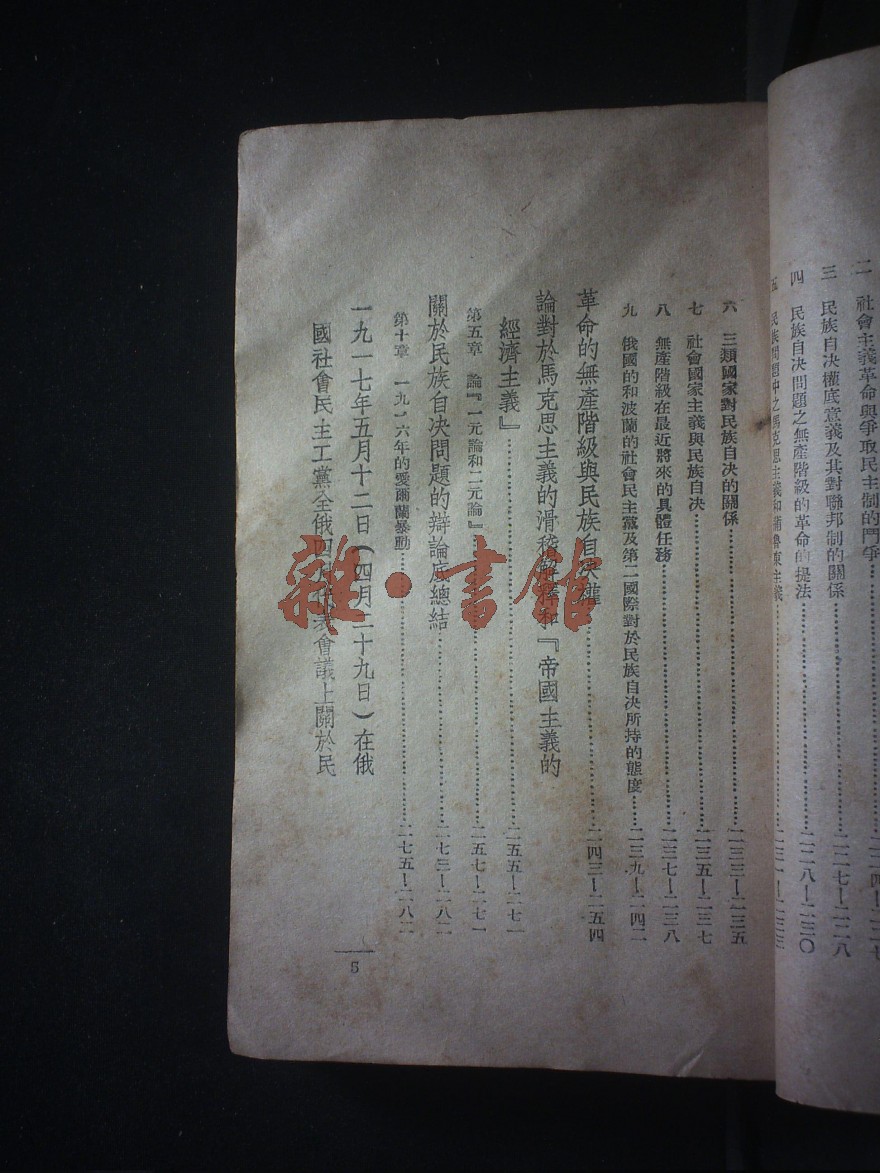 二 社會主義革命與爭取民主制的鬥爭
三 民族自决權底意義及其對聯邦制的關係……二二七—二二八
四 民族自决問題之無產階級的革命的提法……二二八—二三〇
五 民族問題中之馬克思主義和蒲魯東主義……二三一—二三三
六 三類國家對民族自决的關係……二三三—二三五
七 社會國家主義與民族自决……二三五—二三七
八 無產階級在最近將來的具體任務……二三七—二三八
九 俄國的和波蘭的社會民主黨及第二國際對於民族自决所持的態度……二三九—二四二
革命的無產階級與民族自决權……二四三—二五四
論對於馬克思主義的滑稽解釋和『帝國主義的
經濟主義』……二五五—二七一
第五章 論『一元論和二元論』……二五七—二七一
關於民族自决問題的辯論底總結……二七三—二八二
第十章 一九一六年的愛爾蘭暴動……二七五—二八二
一九一七年五月十二日(四月二十九日)在俄
國社會民主工黨全俄四月代表會議上關於民
5
雜·書館